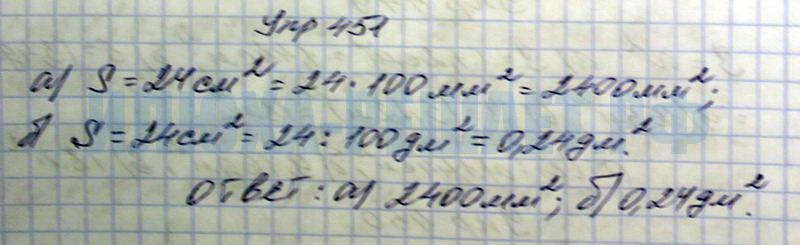 Упр 451
а) S = 24 см² = 24 · 100 мм² = 2400 мм²;
б) S = 24 см² = 24 : 100 дм² = 0,24 дм.²
ответ: а) 2400 мм²; б) 0,24 дм².